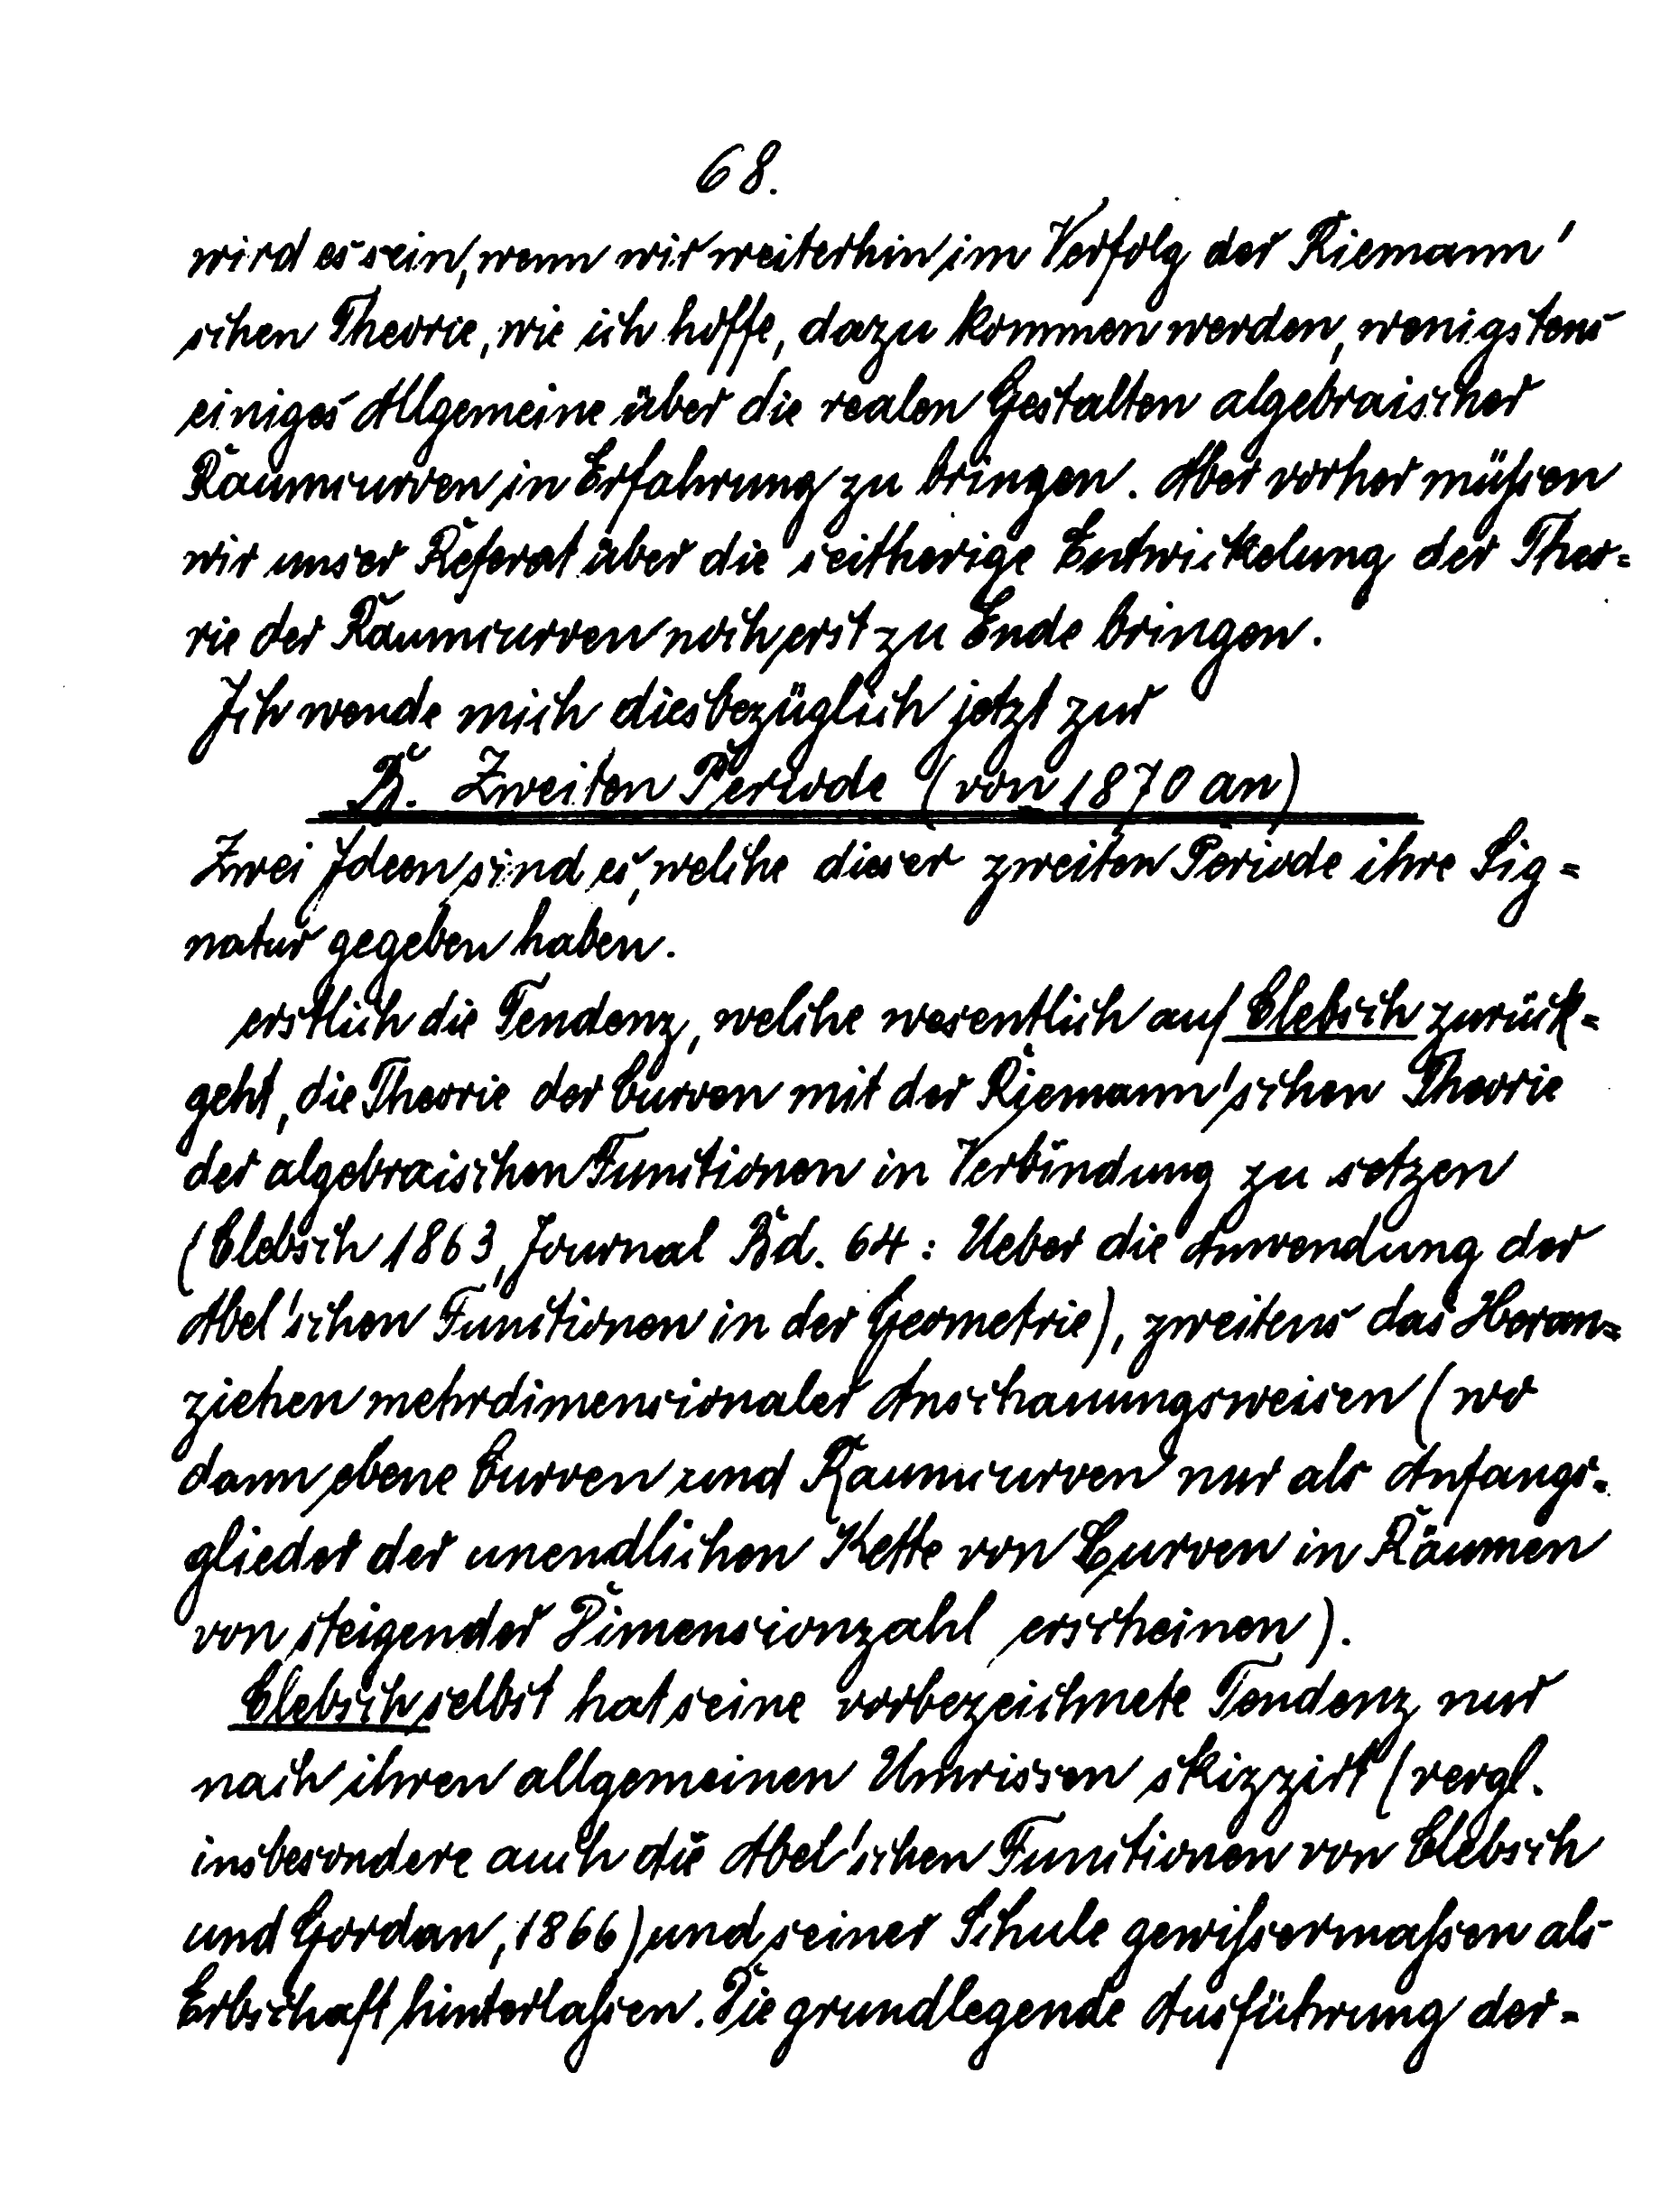 68.
wird es sein, wenn wir weiterhin im Verfolg der Riemann'
schen Theorie, wie ich hoffe, dazu kommen werden, wenigstens
einiges Allgemeine über die realen Gestalten algebraischer
Raumcurven in Erfahrung zu bringen. Aber vorher müßsen
wir unser Referat über die seitherige Entwickelung der Theo=
rie der Raumcurven noch erst zu Ende bringen.
Ich wende mich diesbezüglich jetzt zur
B. Zweiten Periode (von 1870 an)
Zwei Ideen sind es, welche dieser zweiten Periode ihre Sig=
natur gegeben haben.
erstlich die Tendenz, welche wesentlich auf Clebsch zurück=
geht, die Theorie der Curven mit der Riemann'schen Theorie
der algebraischen Functionen in Verbindung zu setzen
(Clebsch 1863, Journal Bd. 64: Ueber die Anwendung der
Abel'schen Functionen in der Geometrie), zweitens das Heran=
ziehen mehrdimensionaler Anschauungsweisen (wo
dann ebene Curven und Raumcurven nur als Anfangs=
glieder der unendlichen Kette von Curven in Räumen
von steigender Dimensionzahl erscheinen).
Clebsch selbst hat seine vorbezeichnete Tendenz nur
nach ihren allgemeinen Umrissen skizzirt (vergl.
insbesondere auch die Abel'schen Functionen von Clebsch
und Gordan, 1866) und seiner Schule gewißsermaßsen als
Erbschaft hinterlaßsen. Die grundlegende Ausführung der=